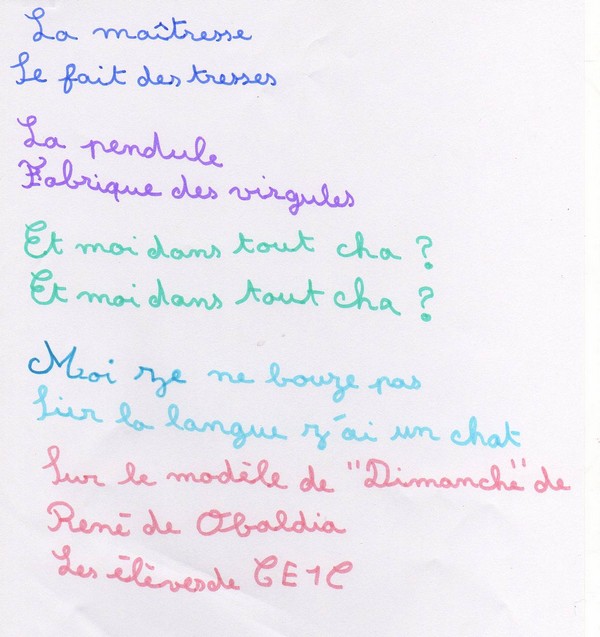 La maîtresse
Se fait des tresses
La pendule
Fabrique des virgules
Et moi dans tout cha ?
Et moi dans tout cha ?
Moi ze ne bouze pas
Sur la langue z'ai un chat
Sur le modèle de "Dimanche" de
René de Obaldia
Les élèves de CE1C